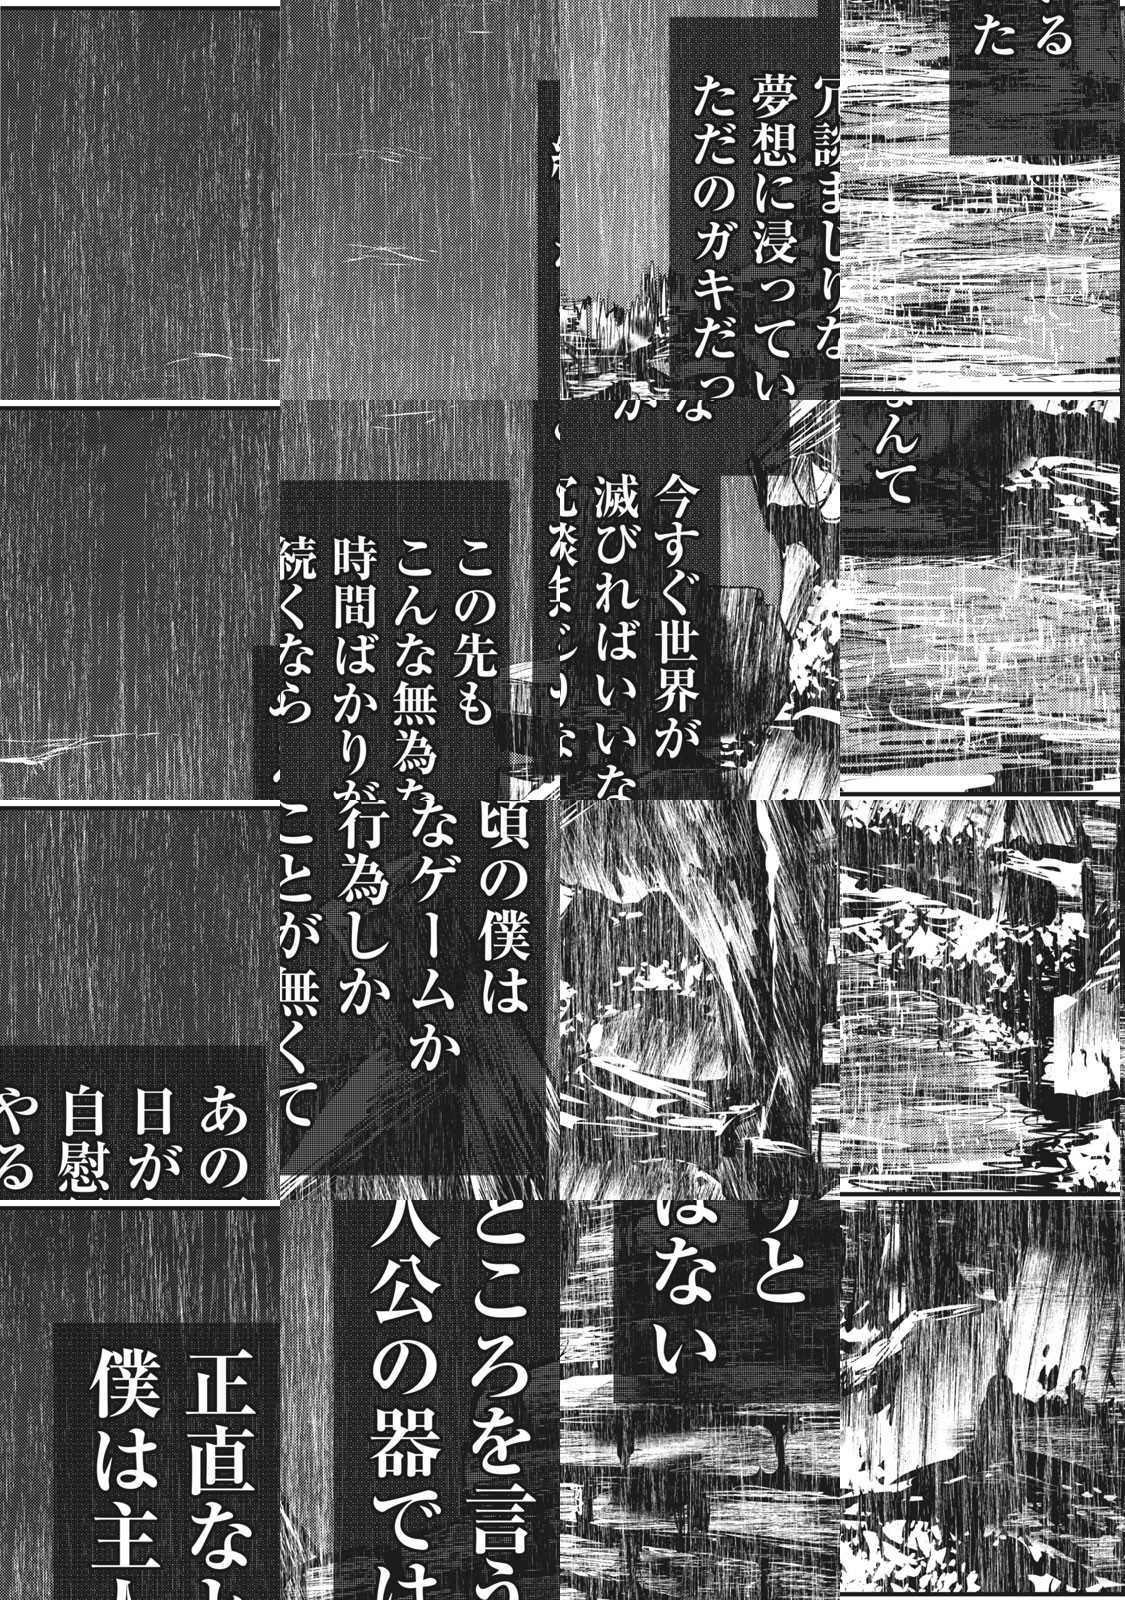 る
た
冗談まじりな
夢想に浸ってい
ただのガキだっ
んて
今すぐ世界が
滅びればいいな
この先も
こんな無為な
時間ばかりが
続くなら
頃の僕は
なゲームか
行為しか
ことが無くて
あの
日が
自慰
やる
うと
はない
ところを言う
人公の器では
正直なと
僕は主人